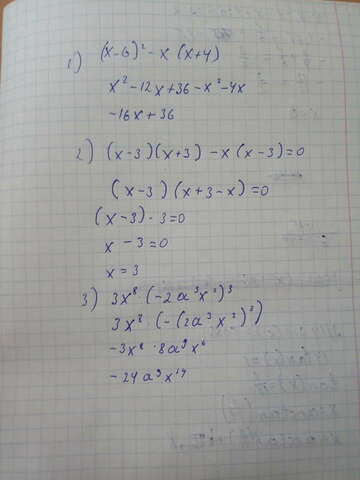 1) (x-6)² - x (x+4)
x² - 12x + 36 - x² - 4x
-16x + 36
2) (x-3)(x+3) - x(x-3) = 0
(x-3)(x+3-x) = 0
(x-3) · 3 = 0
x - 3 = 0
x = 3
3) 3x⁸ · (-2a³x²)³
3x⁸ · (-(2a³x²)³)
-3x⁸ · 8a⁹x⁶
-24a⁹x¹⁴